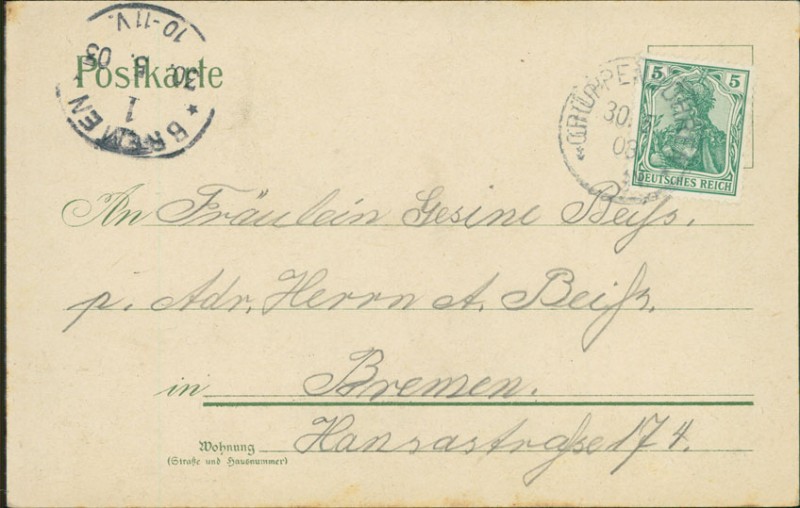 Postkarte
* BREMEN *
1
30. 5. 03
10-11V.
GRUPPENBÜHREN
30. 5
03
5 5
DEUTSCHES REICH
An Fräulein Gesine Beiß.
p. Adr. Herrn A. Beiß.
in Bremen.
Wohnung Hansastraße 174.
(Straße und Hausnummer)